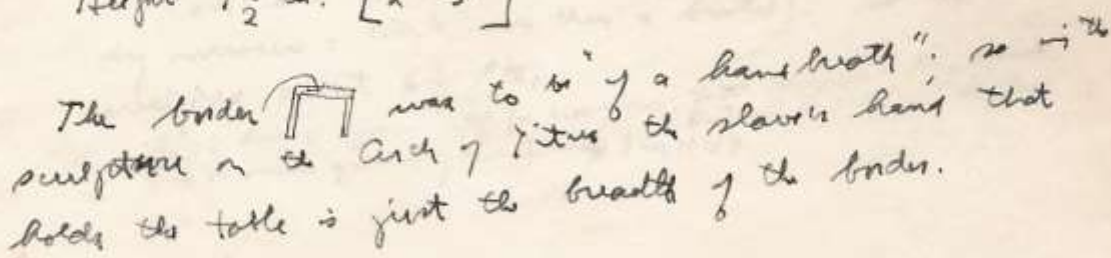 Height 1½
The border was to be "of a handbreath"; so in the
sculpture on the Arch of Titus the slave's hand that
holds the table is just the breadth of the border.